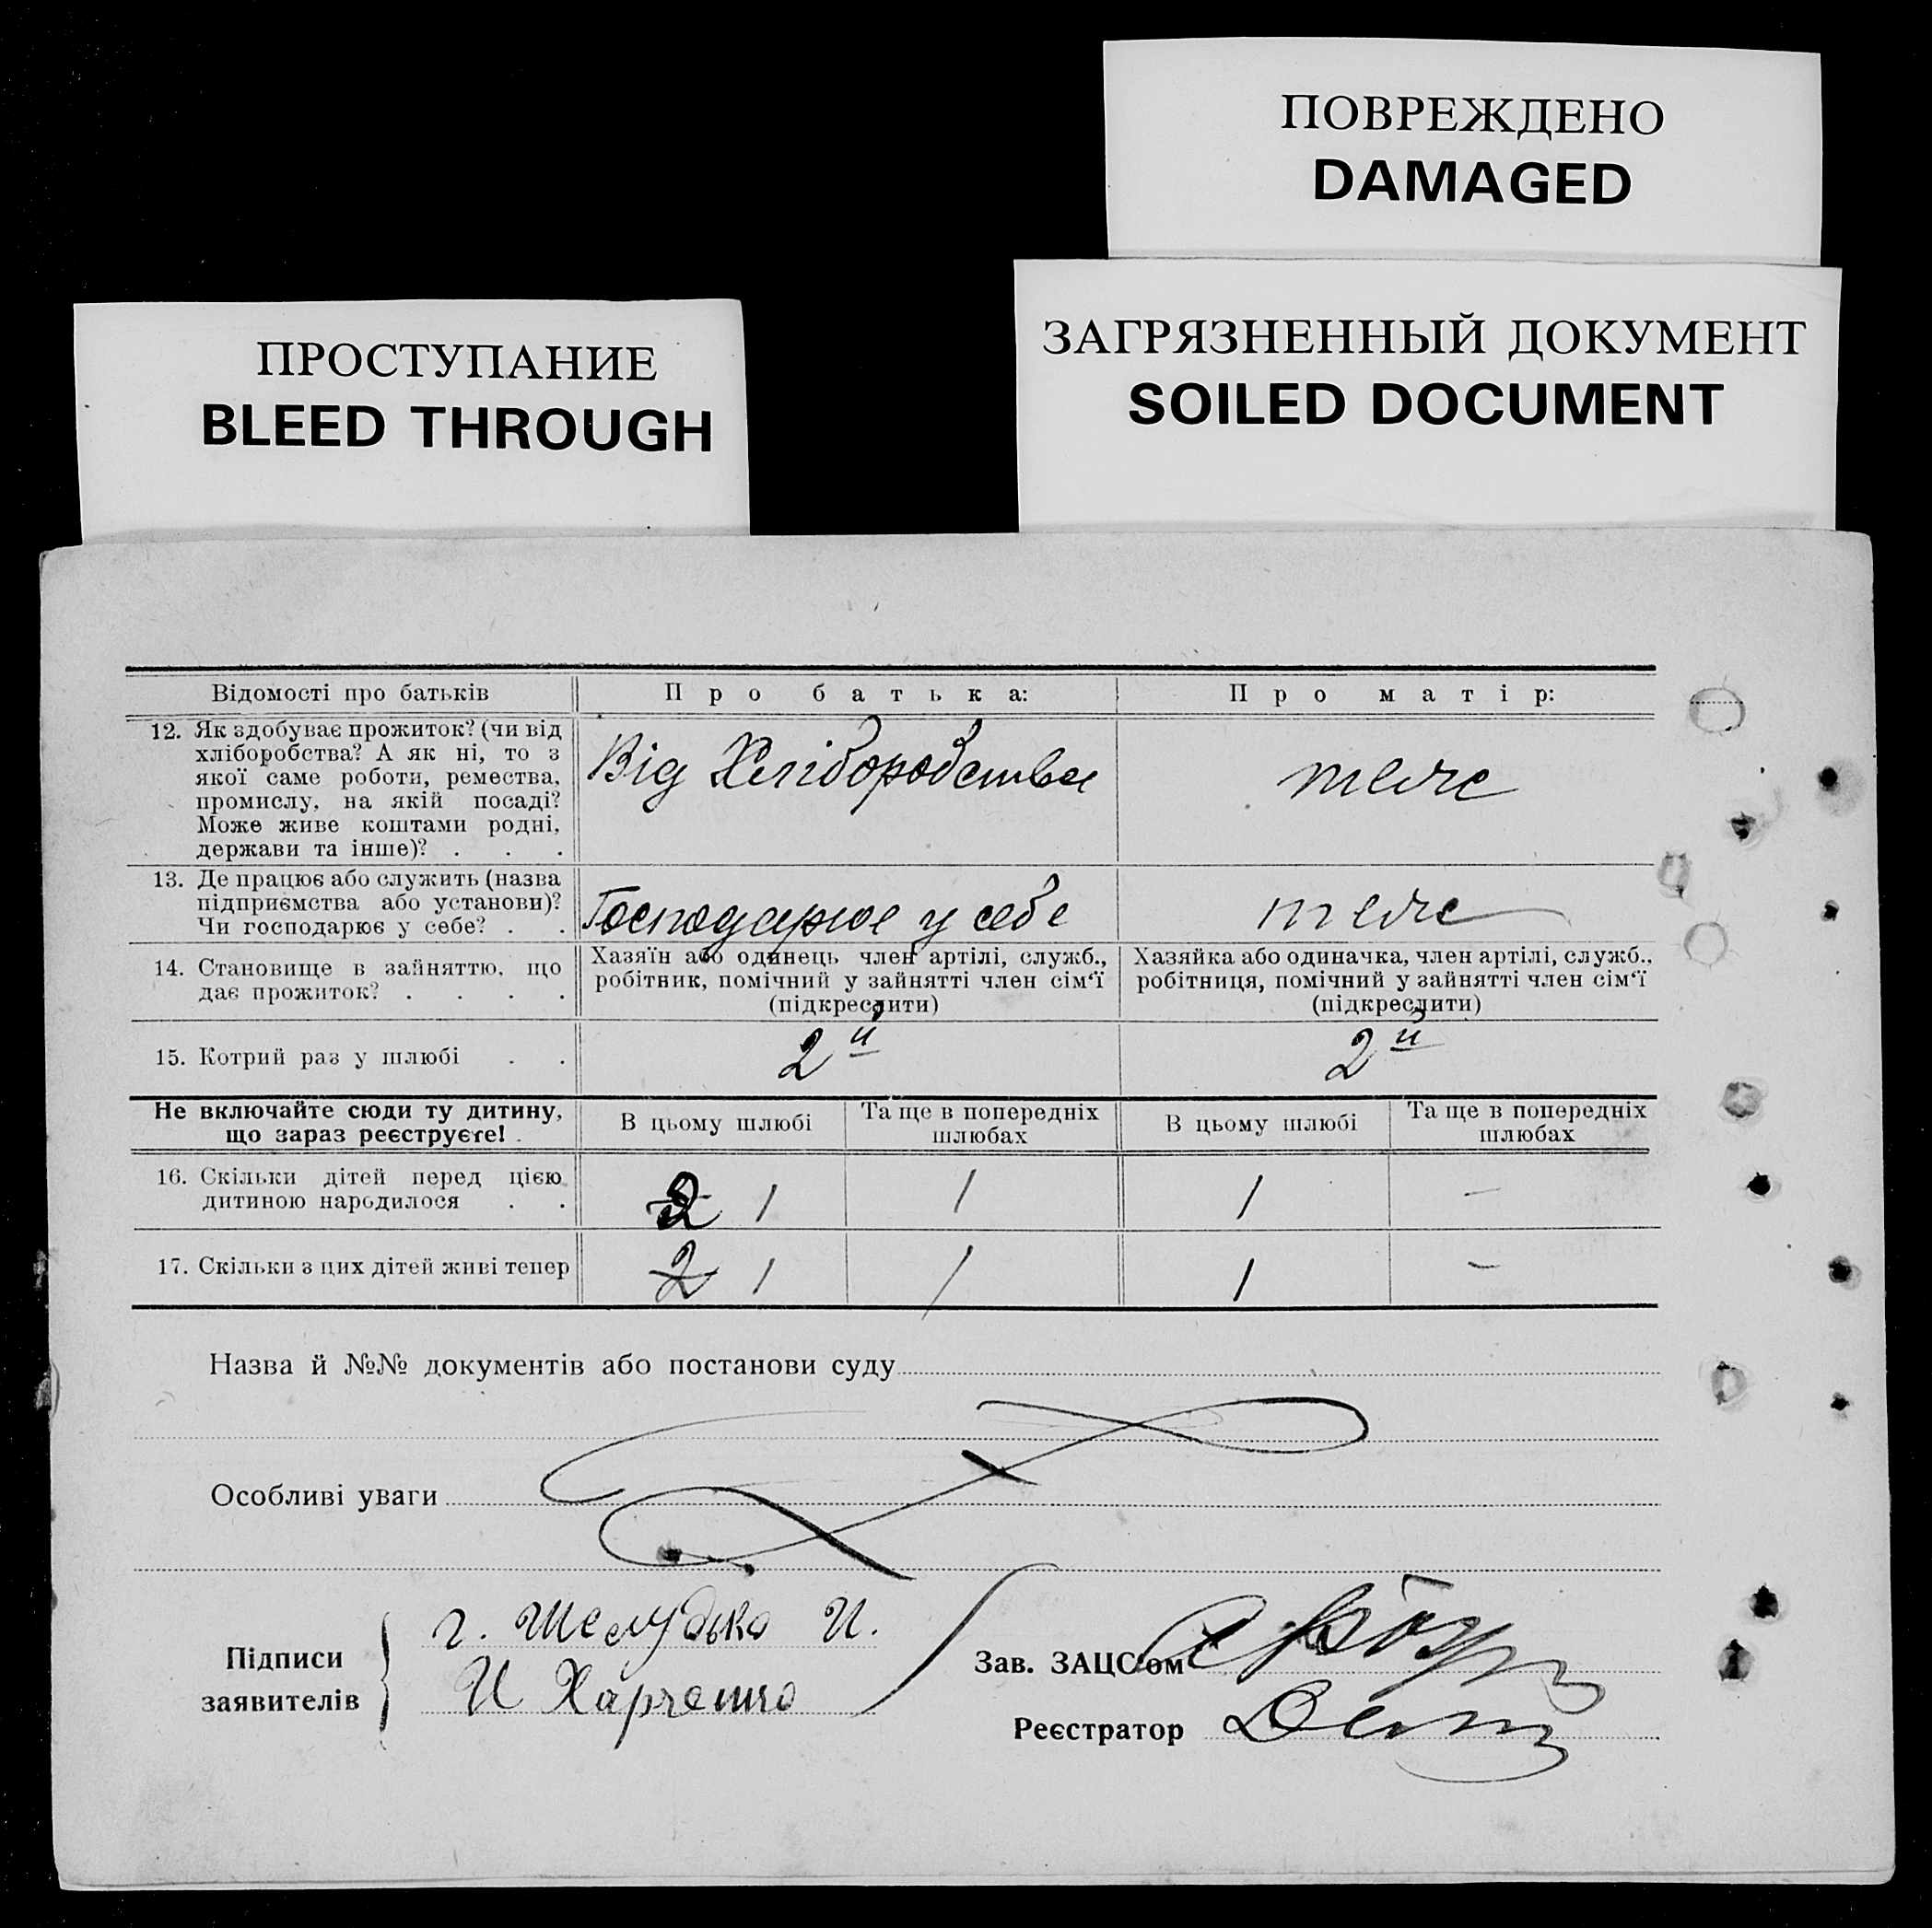 ПОВРЕЖДЕНО
DAMAGED
ПРОСТУПАНИЕ
BLEED THROUGH
ЗАГРЯЗНЕННЫЙ ДОКУМЕНТ
SOILED DOCUMENT
Відомості про батьків Про батька: Про матір:
12. Як здобуває прожиток? (чи від
хліборобства? А як ні, то з
якої саме роботи, ремества,
промислу, на якій посаді?
Може живе коштами родні,
держави та інше)? . . .
Від Хліборобства
теже
13. Де працює або служить (назва
підприємства або установи)?
Чи господарює у себе? . .
Господарює у себе
теже
14. Становище в зайняттю, що
дає прожиток? . . . .
Хазяїн або одинець член артілі, служб.,
робітник, помічний у зайнятті член сім‘ї
(підкреслити)
Хазяйка або одиначка, член артілі, служб.,
робітниця, помічний у зайнятті член сім‘ї
(підкреслити)
15. Котрий раз у шлюбі . . 2й 2й
Не включайте сюди ту дитину,
що зараз реєструєте! .
В цьому шлюбі
Та ще в попередніх
шлюбах
В цьому шлюбі
Та ще в попередніх
шлюбах
16. Скільки дітей перед цією
дитиною народилося . .
2 1 1 1 —
17. Скільки з цих дітей живі тепер 2 1 1 1 —
Назва й №№ документів або постанови суду
Особливі уваги
Підписи
заявителів
г. Шелудько И.
И Харченко
Зав. ЗАЦС‘ом
Реєстратор